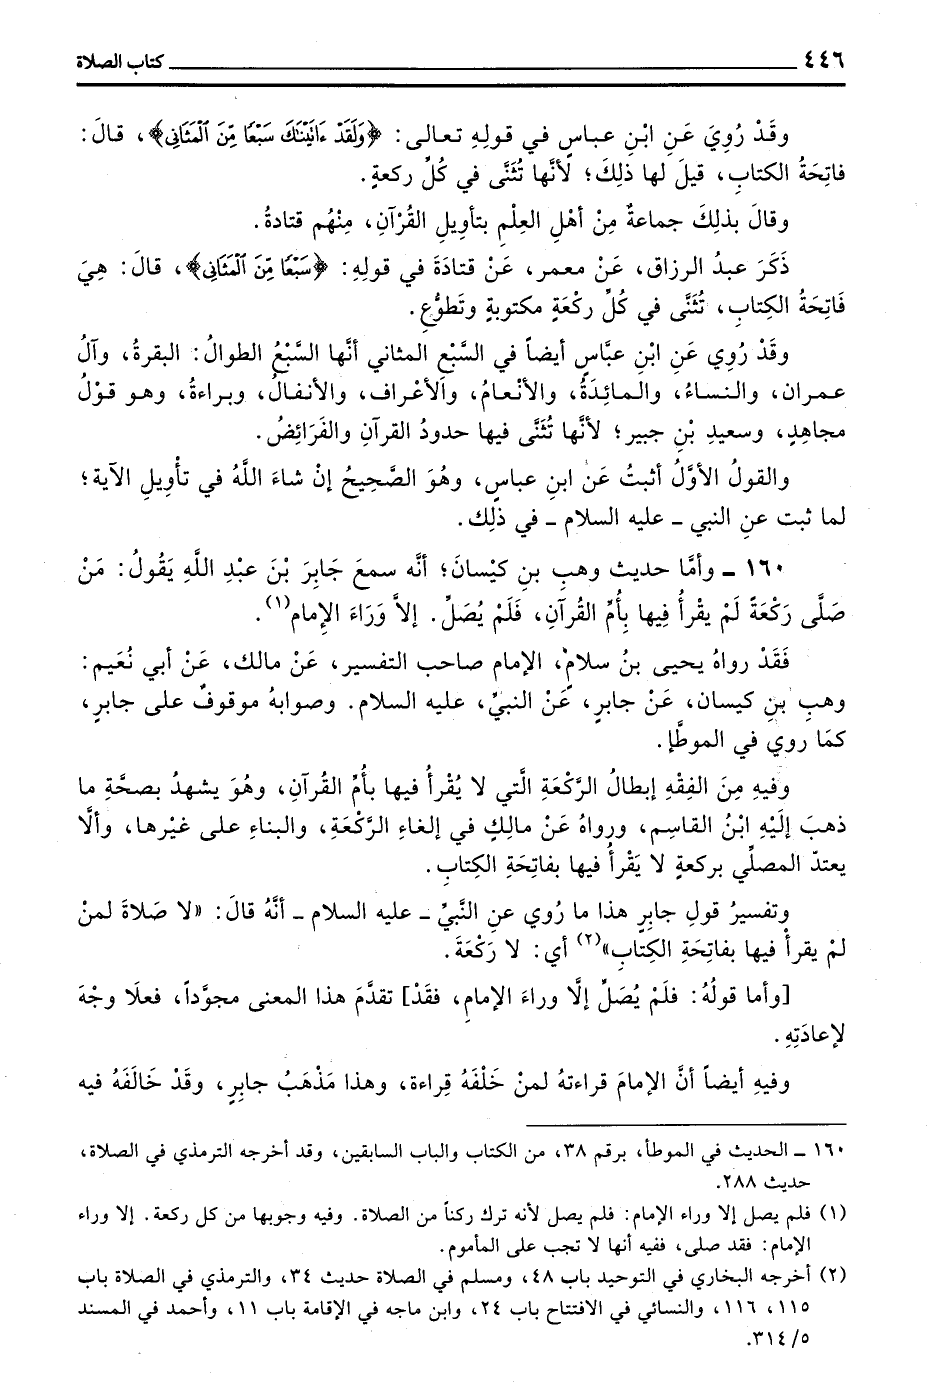 ٤٤٦ كتاب الصلاة
وقَدْ رُوِيَ عَنِ ابْنِ عباسٍ في قولِهِ تعالى: ﴿وَلَقَدْ ءَاتَيْنَاكَ سَبْعًا مِّنَ ٱلْمَثَانِى﴾، قالَ:
فاتِحَةُ الكتابِ، قيلَ لها ذلِكَ؛ لأنَّها تُثَنَّى في كُلِّ ركعةٍ.
وقالَ بذلِكَ جماعةٌ مِنْ أهلِ العِلْمِ بتأويلِ القُرْآنِ، مِنْهُم قتادةُ.
ذَكَرَ عبدُ الرزاق، عَنْ معمر، عَنْ قتادَةَ في قولِهِ: ﴿سَبْعًا مِّنَ ٱلْمَثَانِى﴾، قالَ: هِيَ
فَاتِحَةُ الكِتابِ، تُثَنَّى في كُلِّ ركْعَةٍ مكتوبةٍ وتَطوُّعٍ.
وقَدْ رُوِي عَنِ ابْنِ عبَّاسٍ أيضاً في السَّبْعِ المثاني أنَّها السَّبْعُ الطوالُ: البقرةُ، وآلُ
عمران، والنساءُ، والمائِدَةُ، والأنْعامُ، والأعْراف، والأنفالُ، وبراءةُ، وهو قوْلُ
مجاهِدٍ، وسعيدِ بْنِ جبير؛ لأنَّها تُثَنَّى فيها حدودُ القرآنِ والفَرَائِضُ.
والقولُ الأوَّلُ أثبتُ عَنْ ابنِ عباسٍ، وهُوَ الصَّحِيحُ إنْ شاءَ اللَّهُ في تأْوِيلِ الآية؛
لما ثبت عنِ النبي ـ عليه السلام ـ في ذلِك.
١٦٠ ـ وأمَّا حديث وهبِ بنِ كيْسانَ؛ أنَّه سمعَ جَابِرَ بْنَ عبْدِ اللَّهِ يَقُولُ: مَنْ
صَلَّى رَكْعَةً لَمْ يقْرأْ فِيها بِأُمِّ القرآنِ، فَلَمْ يُصَلِّ. إلاَّ وَرَاءَ الإمام(١).
فَقَدْ رواهُ يحيى بنُ سلام، الإمام صاحب التفسير، عَنْ مالك، عَنْ أبي نُعَيم:
وهبِ بنِ كيسان، عَنْ جابرٍ، عَنْ النبيِّ، عليه السلام. وصوابهُ موقوفٌ على جابرٍ،
كمَا روي في الموطَّإِ.
وفيهِ مِنَ الفِقْهِ إبطالُ الرَّكْعَةِ الَّتي لا يُقْرأُ فيها بأُمِّ القُرآنِ، وهُوَ يشهدُ بصحَّةِ ما
ذهبَ إلَيْهِ ابْنُ القاسِم، ورواهُ عَنْ مالِكٍ في إلغاءِ الرَّكْعَةِ، والبناءِ على غيْرها، وألَّا
يعتدّ المصلِّي بركعةٍ لا يَقْرأُ فيها بفاتِحَةِ الكِتابِ.
وتفسيرُ قولِ جابِرٍ هذا ما رُوِي عنِ النَّبيِّ ـ عليه السلام ـ أنَّهُ قالَ: «لا صَلاةَ لمنْ
لمْ يقرأْ فيها بفاتِحَةِ الكِتابِ»(٢) أي: لا رَكْعَةَ.
[وأما قولُهُ: فلَمْ يُصَلِّ إلَّا وراءَ الإمامِ، فقَدْ] تقدَّمَ هذا المعنى مجوَّداً، فعلَا وجْهَ
لإعادَتِهِ.
وفيهِ أيضاً أنَّ الإمامَ قراءتهُ لمنْ خَلْفَهُ قِراءة، وهذا مَذْهَبُ جابِرٍ، وقَدْ خَالَفَهُ فيه
١٦٠ ـ الحديث في الموطأ، برقم ٣٨، من الكتاب والباب السابقين، وقد أخرجه الترمذي في الصلاة،
حديث ٢٨٨.
(١) فلم يصل إلا وراء الإمام: فلم يصل لأنه ترك ركناً من الصلاة. وفيه وجوبها من كل ركعة. إلا وراء
الإمام: فقد صلى، ففيه أنها لا تجب على المأموم.
(٢) أخرجه البخاري في التوحيد باب ٤٨، ومسلم في الصلاة حديث ٣٤، والترمذي في الصلاة باب
١١٥، ١١٦، والنسائي في الافتتاح باب ٢٤، وابن ماجه في الإقامة باب ١١، وأحمد في المسند
٥/ ٣١٤.